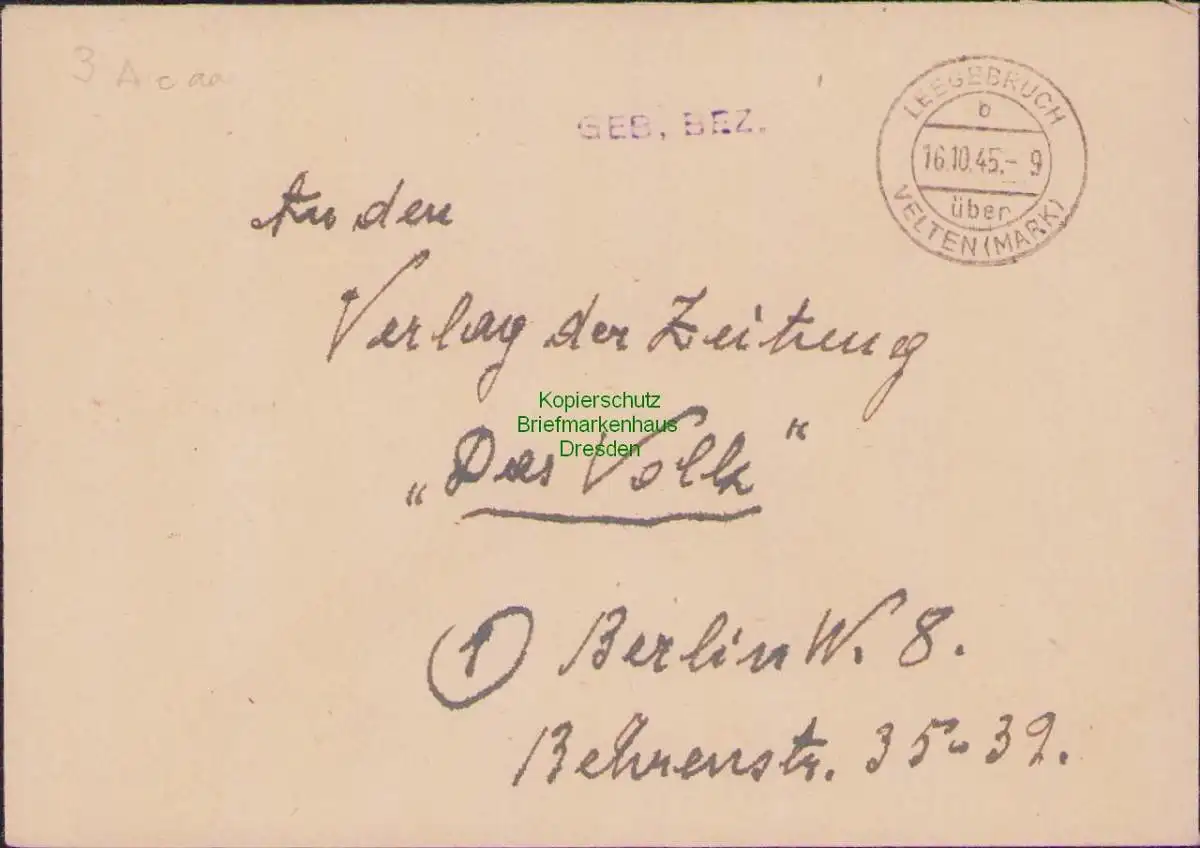 3 A c aa
GEB, BEZ.
LEEGEBRUCH
b
16.10.45.- 9
über
VELTEN (MARK)
An den
Verlag der Zeitung
Kopierschutz
Briefmarkenhaus
Dresden
„Das Volk“
1 Berlin W. 8.
Behrenstr. 35-39.